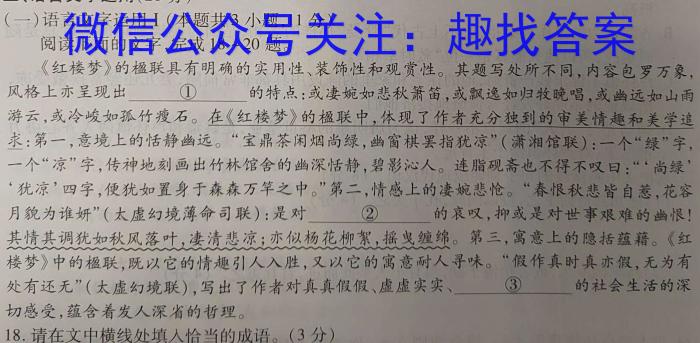 微信公众号关注：趣找答案
(一)语言文字运用Ⅰ(本题共3小题,
阅读下面的文字,完成18~20题。
《红楼梦》的楹联具有明确的实用性、装饰性和观赏性。其题写处所不同,内容包罗万象,
风格上亦呈现出 ① 的特点:或凄婉如悲秋箫笛,或飘逸如归牧晚唱,或幽远如山雨
游云,或冷峻如孤竹瘦石。在《红楼梦》的楹联中,体现了作者充分独到的审美情趣和美学追
求:第一,意境上的恬静幽远。“宝鼎茶闲烟尚绿,幽窗棋罢指犹凉”(潇湘馆联):一个“绿”字,
一个“凉”字,传神地刻画出竹林馆舍的幽深恬静,碧影沁人。连脂砚斋也不得不叹曰:“‘尚绿’
‘犹凉’四字,便犹如置身于森森万竿之中。”第二,情感上的凄婉悲怆。“春恨秋悲皆自惹,花容
月貌为谁妍”(太虚幻境薄命司联):是对 ② 的哀叹,抑或是对世事艰难的幽恨!
其情其调犹如秋风落叶,凄清悲凉;亦似杨花柳絮,摇曳缠绵。第三,寓意上的隐括蕴藉。《红
楼梦》中的楹联,既以它的情趣引人入胜,又以它的寓意耐人寻味。“假作真时真亦假,无为有
处有还无”(太虚幻境联),写出了作者对真真假假、虚虚实实、 ③ 的社会生活的深
切感受,蕴含着发人深省的哲理。
18.请在文中横线处填入恰当的成语。(3分)